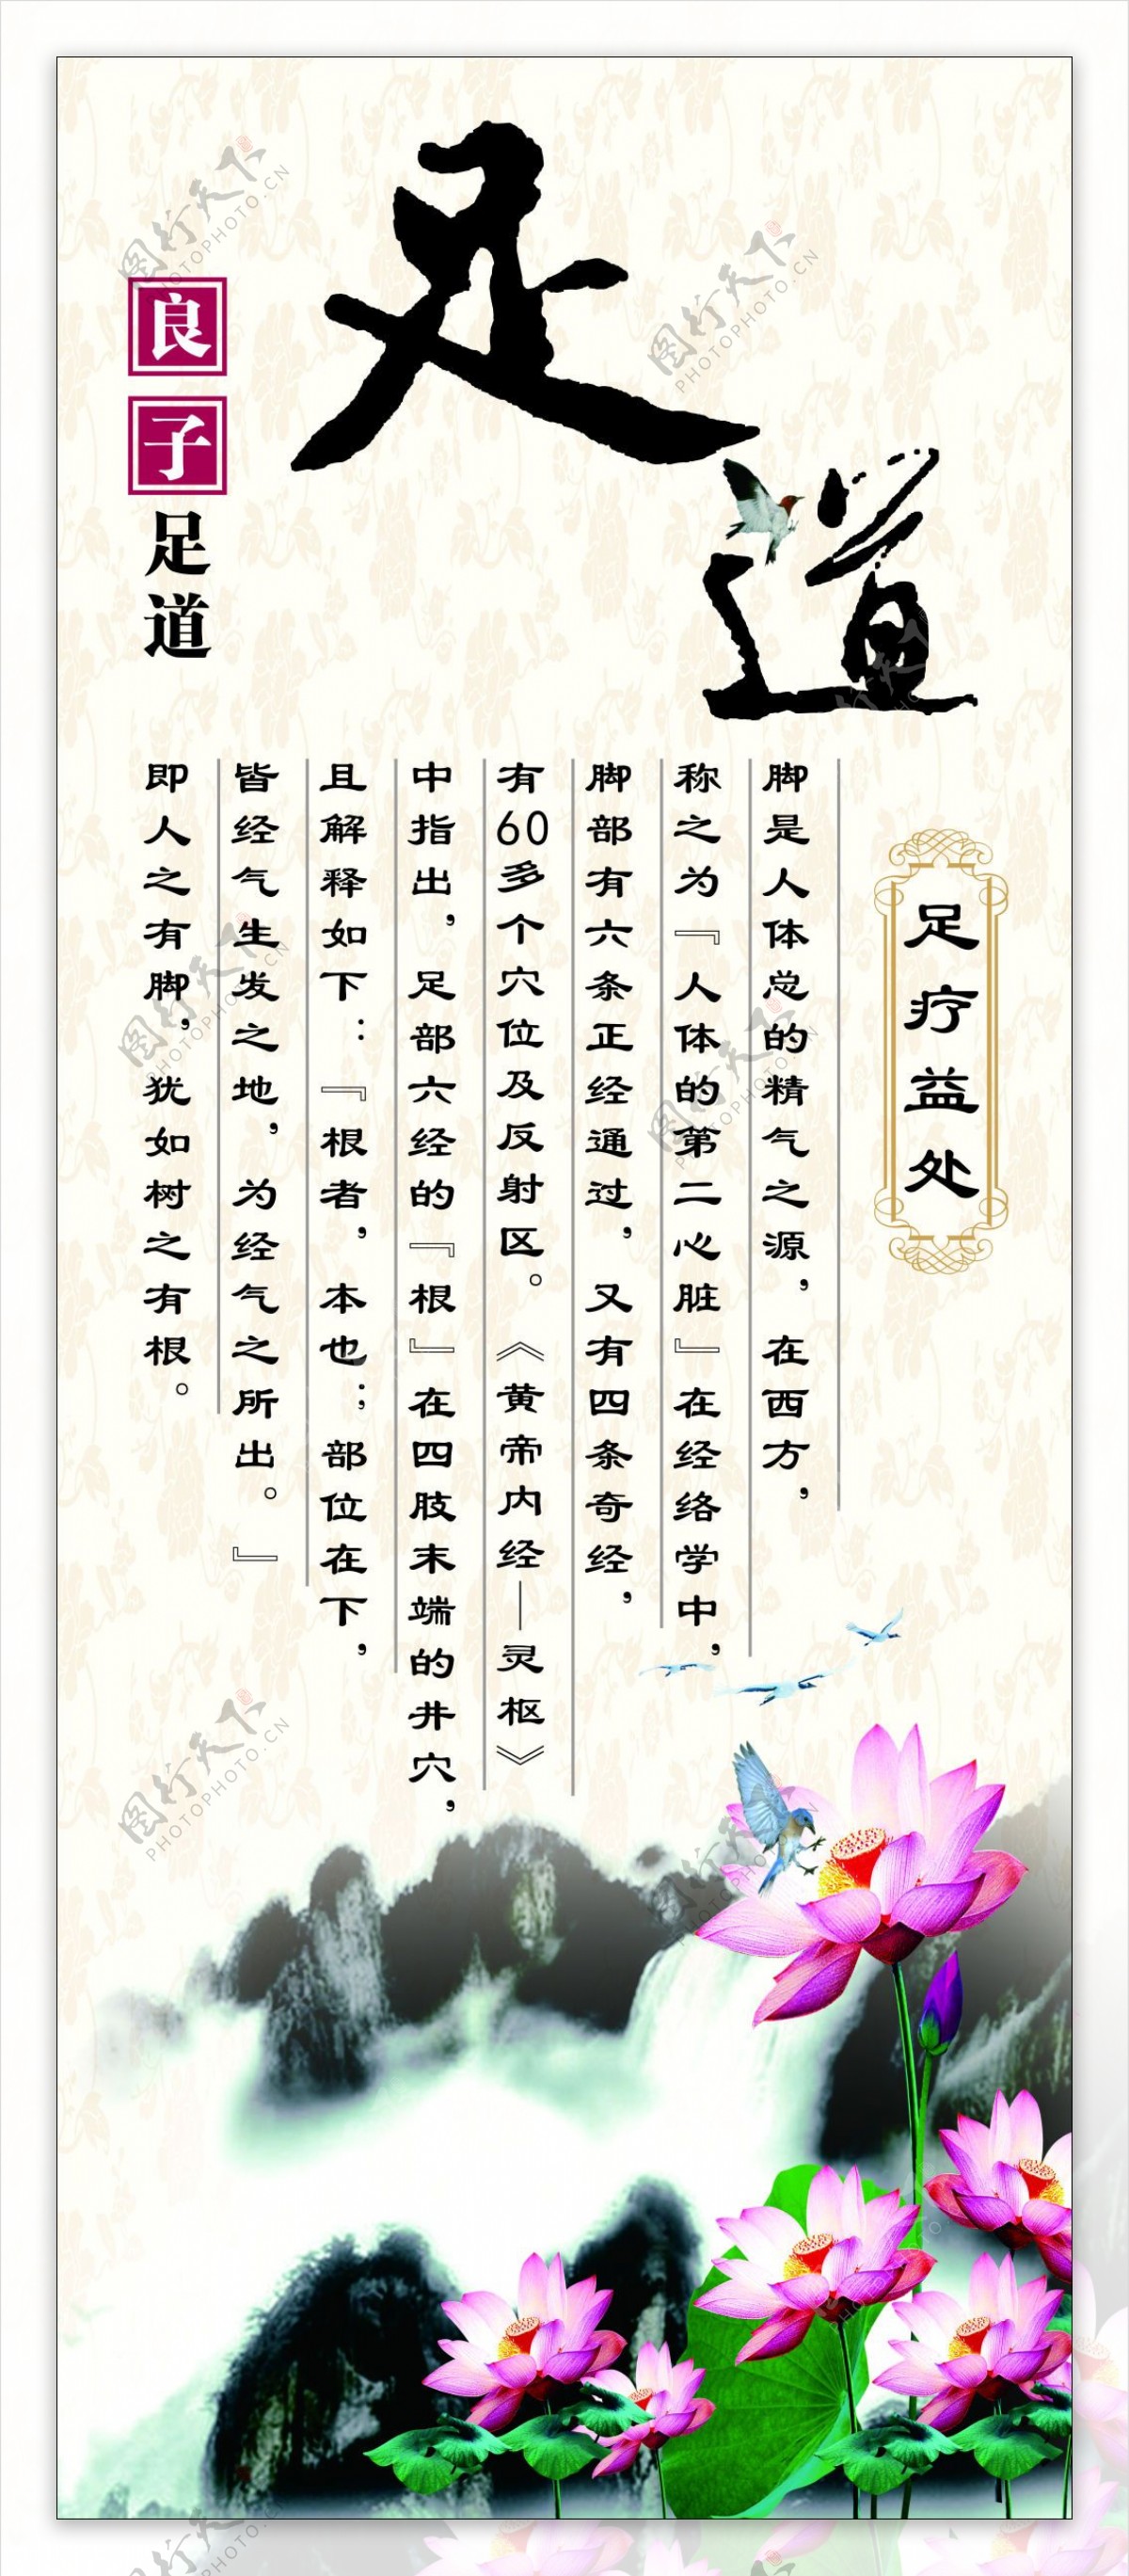 足道
良子足道
足疗益处
脚是人体总的精气之源，在西方，
称之为『人体的第二心脏』在经络学中，
脚部有六条正经通过，又有四条奇经，
有60多个穴位及反射区。《黄帝内经—灵枢》
中指出，足部六经的『根』在四肢末端的井穴，
且解释如下：『根者，本也；部位在下，
皆经气生发之地，为经气之所出。』
即人之有脚，犹如树之有根。
图行天下
PHOTOPHOTO.CN
图行天下
PHOTOPHOTO.CN
图行天下
PHOTOPHOTO.CN
图行天下
PHOTOPHOTO.CN
图行天下
PHOTOPHOTO.CN